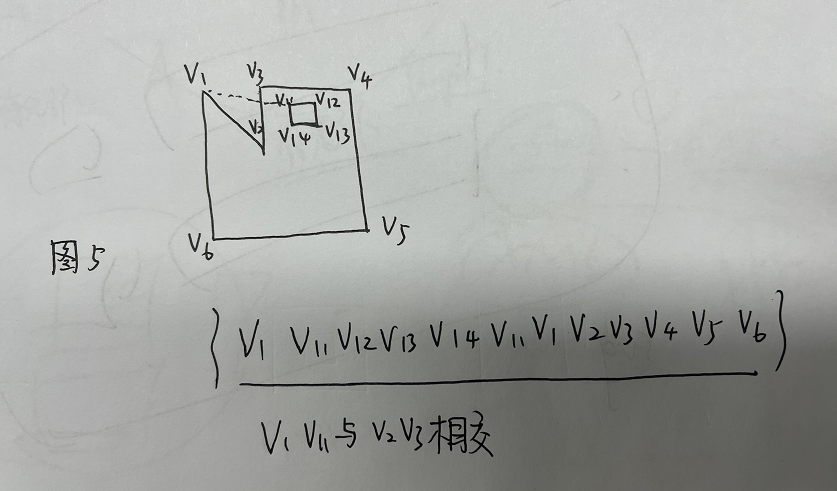 V1 V3 V4
V11 V12
V2 V14 V13
V6 V5
图5
{V1 V11 V12 V13 V14 V11 V1 V2 V3 V4 V5 V6}
V1 V11与V2V3相交